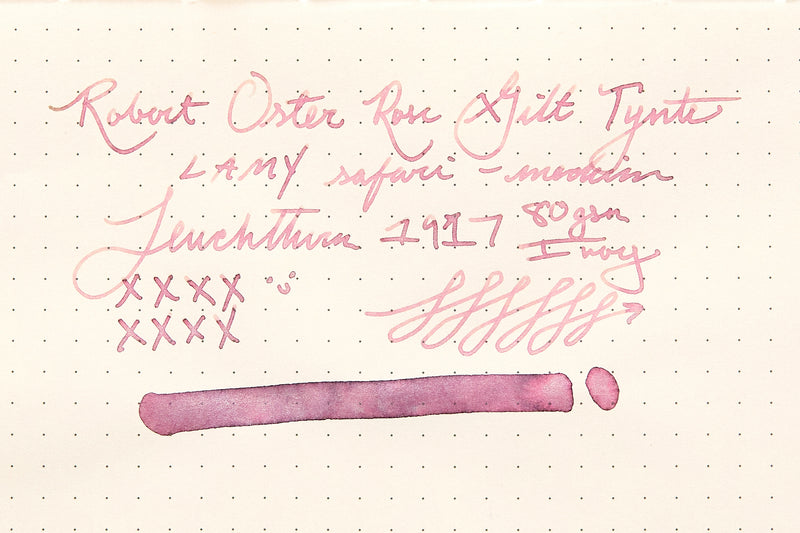 Robert Oster Rose Gilt Tynte
LAMY safari - medium
Leuchtturm 1917 80gsm
Ivory
XXXX
XXXX